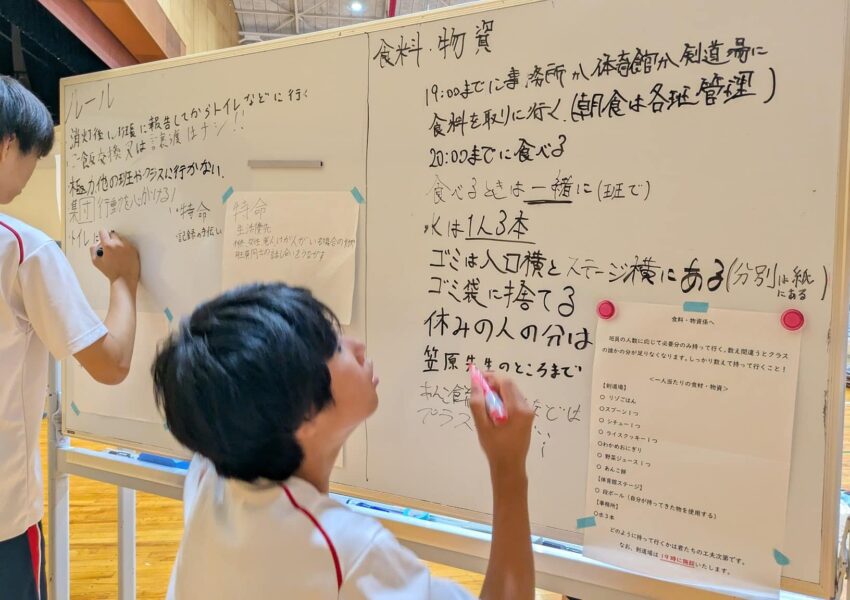 ルール
消灯後は班長に報告してからトイレなどに行く
ご飯交換又は譲渡はナシ!!
極力他の班やクラスに行かない.
集団行動を心がける!
トイレ
特命
記録の手伝い
特命
生活優先
食料・物資
19:00までに事務所か体育館か剣道場に
食料を取りに行く.(朝食は各班管理)
20:00までに食べる
食べるときは一緒に(班で)
水は1人3本
ゴミは入口横とステージ横にある(分別は紙にある)
ゴミ袋に捨てる
休みの人の分は
笠原先生のところまで
プラス
食料・物資係へ
班員の人数に応じて必要分のみ持って行く。数え間違うとクラス
の誰かの分が足りなくなります。しっかり数えて持って行くこと!
<一人当たりの食材・物資>
【剣道場】
○ リゾごはん
○スプーン1つ
○ シチュー1つ
○ ライスクッキー1つ
○わかめおにぎり
○ 野菜ジュース1つ
○ あんこ餅
【体育館ステージ】
○ 段ボール(自分が持ってきた物を使用する)
【事務所】
○水3本
どのように持って行くかは君たちの工夫次第です。
なお、剣道場は19時に施錠いたします。